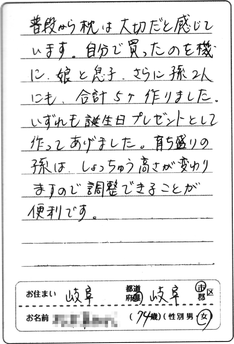 普段から枕は大切だと感じて
います。自分で買ったのを機
に、娘と息子、さらに孫2人
にも、合計5ヶ作りました。
いずれも誕生日プレゼントとして
作ってあげました。育ち盛りの
孫は、しょっちゅう高さが変わり
ますので調整できることが
便利です。
お住まい 岐阜 都道府県 岐阜 市郡区
お名前 (74歳)(性別 男・女)